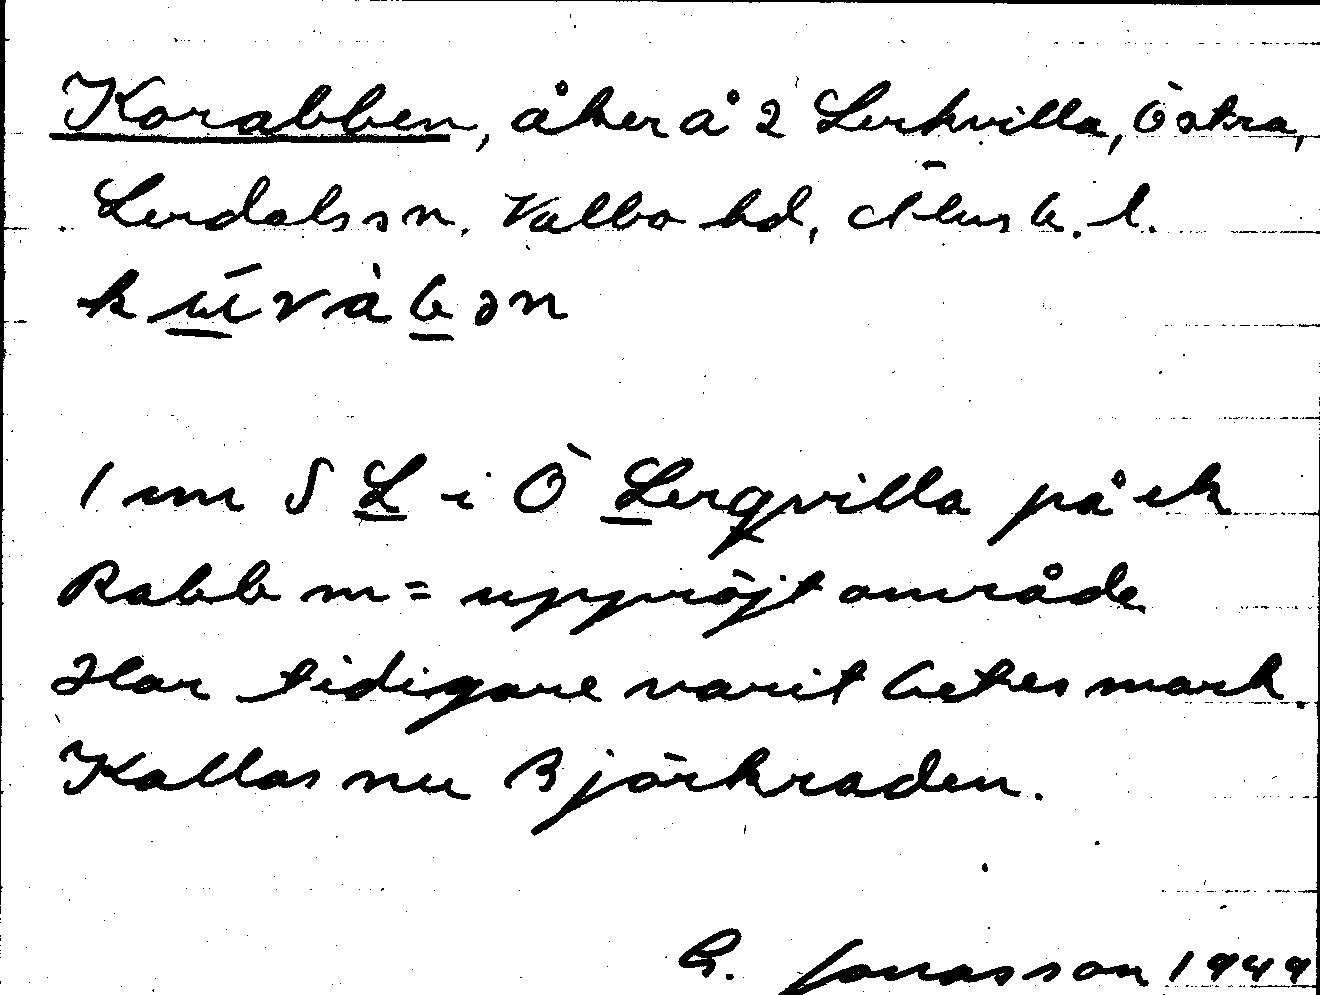 Korabben, åker å 2 Lerkvilla, Östra,
Lerdals sn. Valbo hd, Älvsb. l.
1 um S L i Ö Lerqvilla på ek
Rabb m = uppröjt område
Har tidigare varit betesmark.
Kallas nu Björkraden.
G. Jonasson 1949